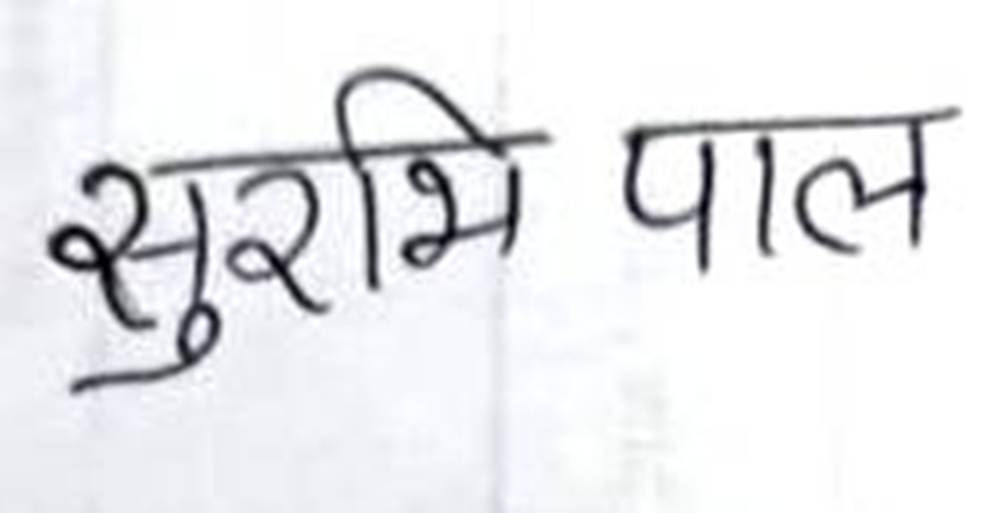 सुरभि पाल